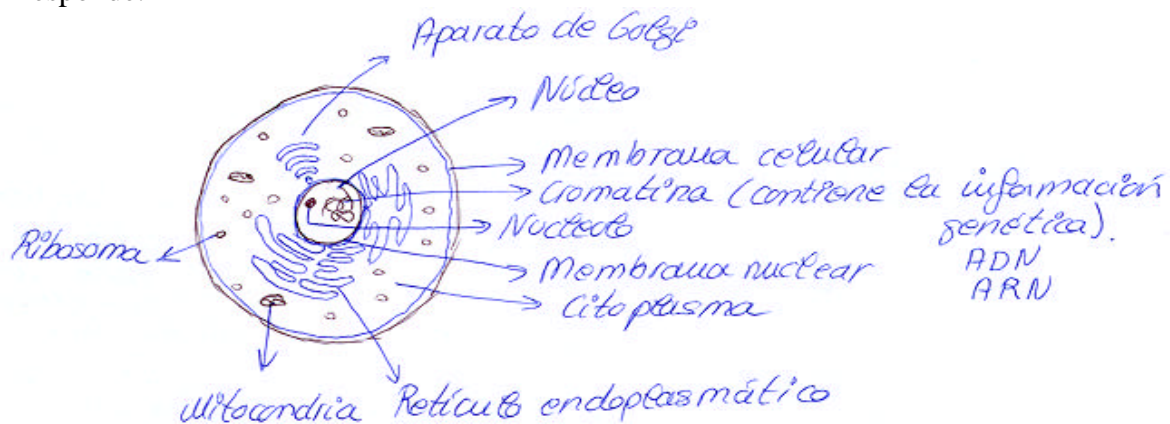 Aparato de Golgi
Núcleo
Membrana celular
Cromatina (contiene la información
genética).
Nucleolo
ADN
Ribosoma
Membrana nuclear
ARN
Citoplasma
Mitocondria
Retículo endoplasmático